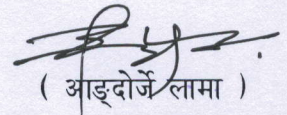 ( आङ्दोर्जे लामा )